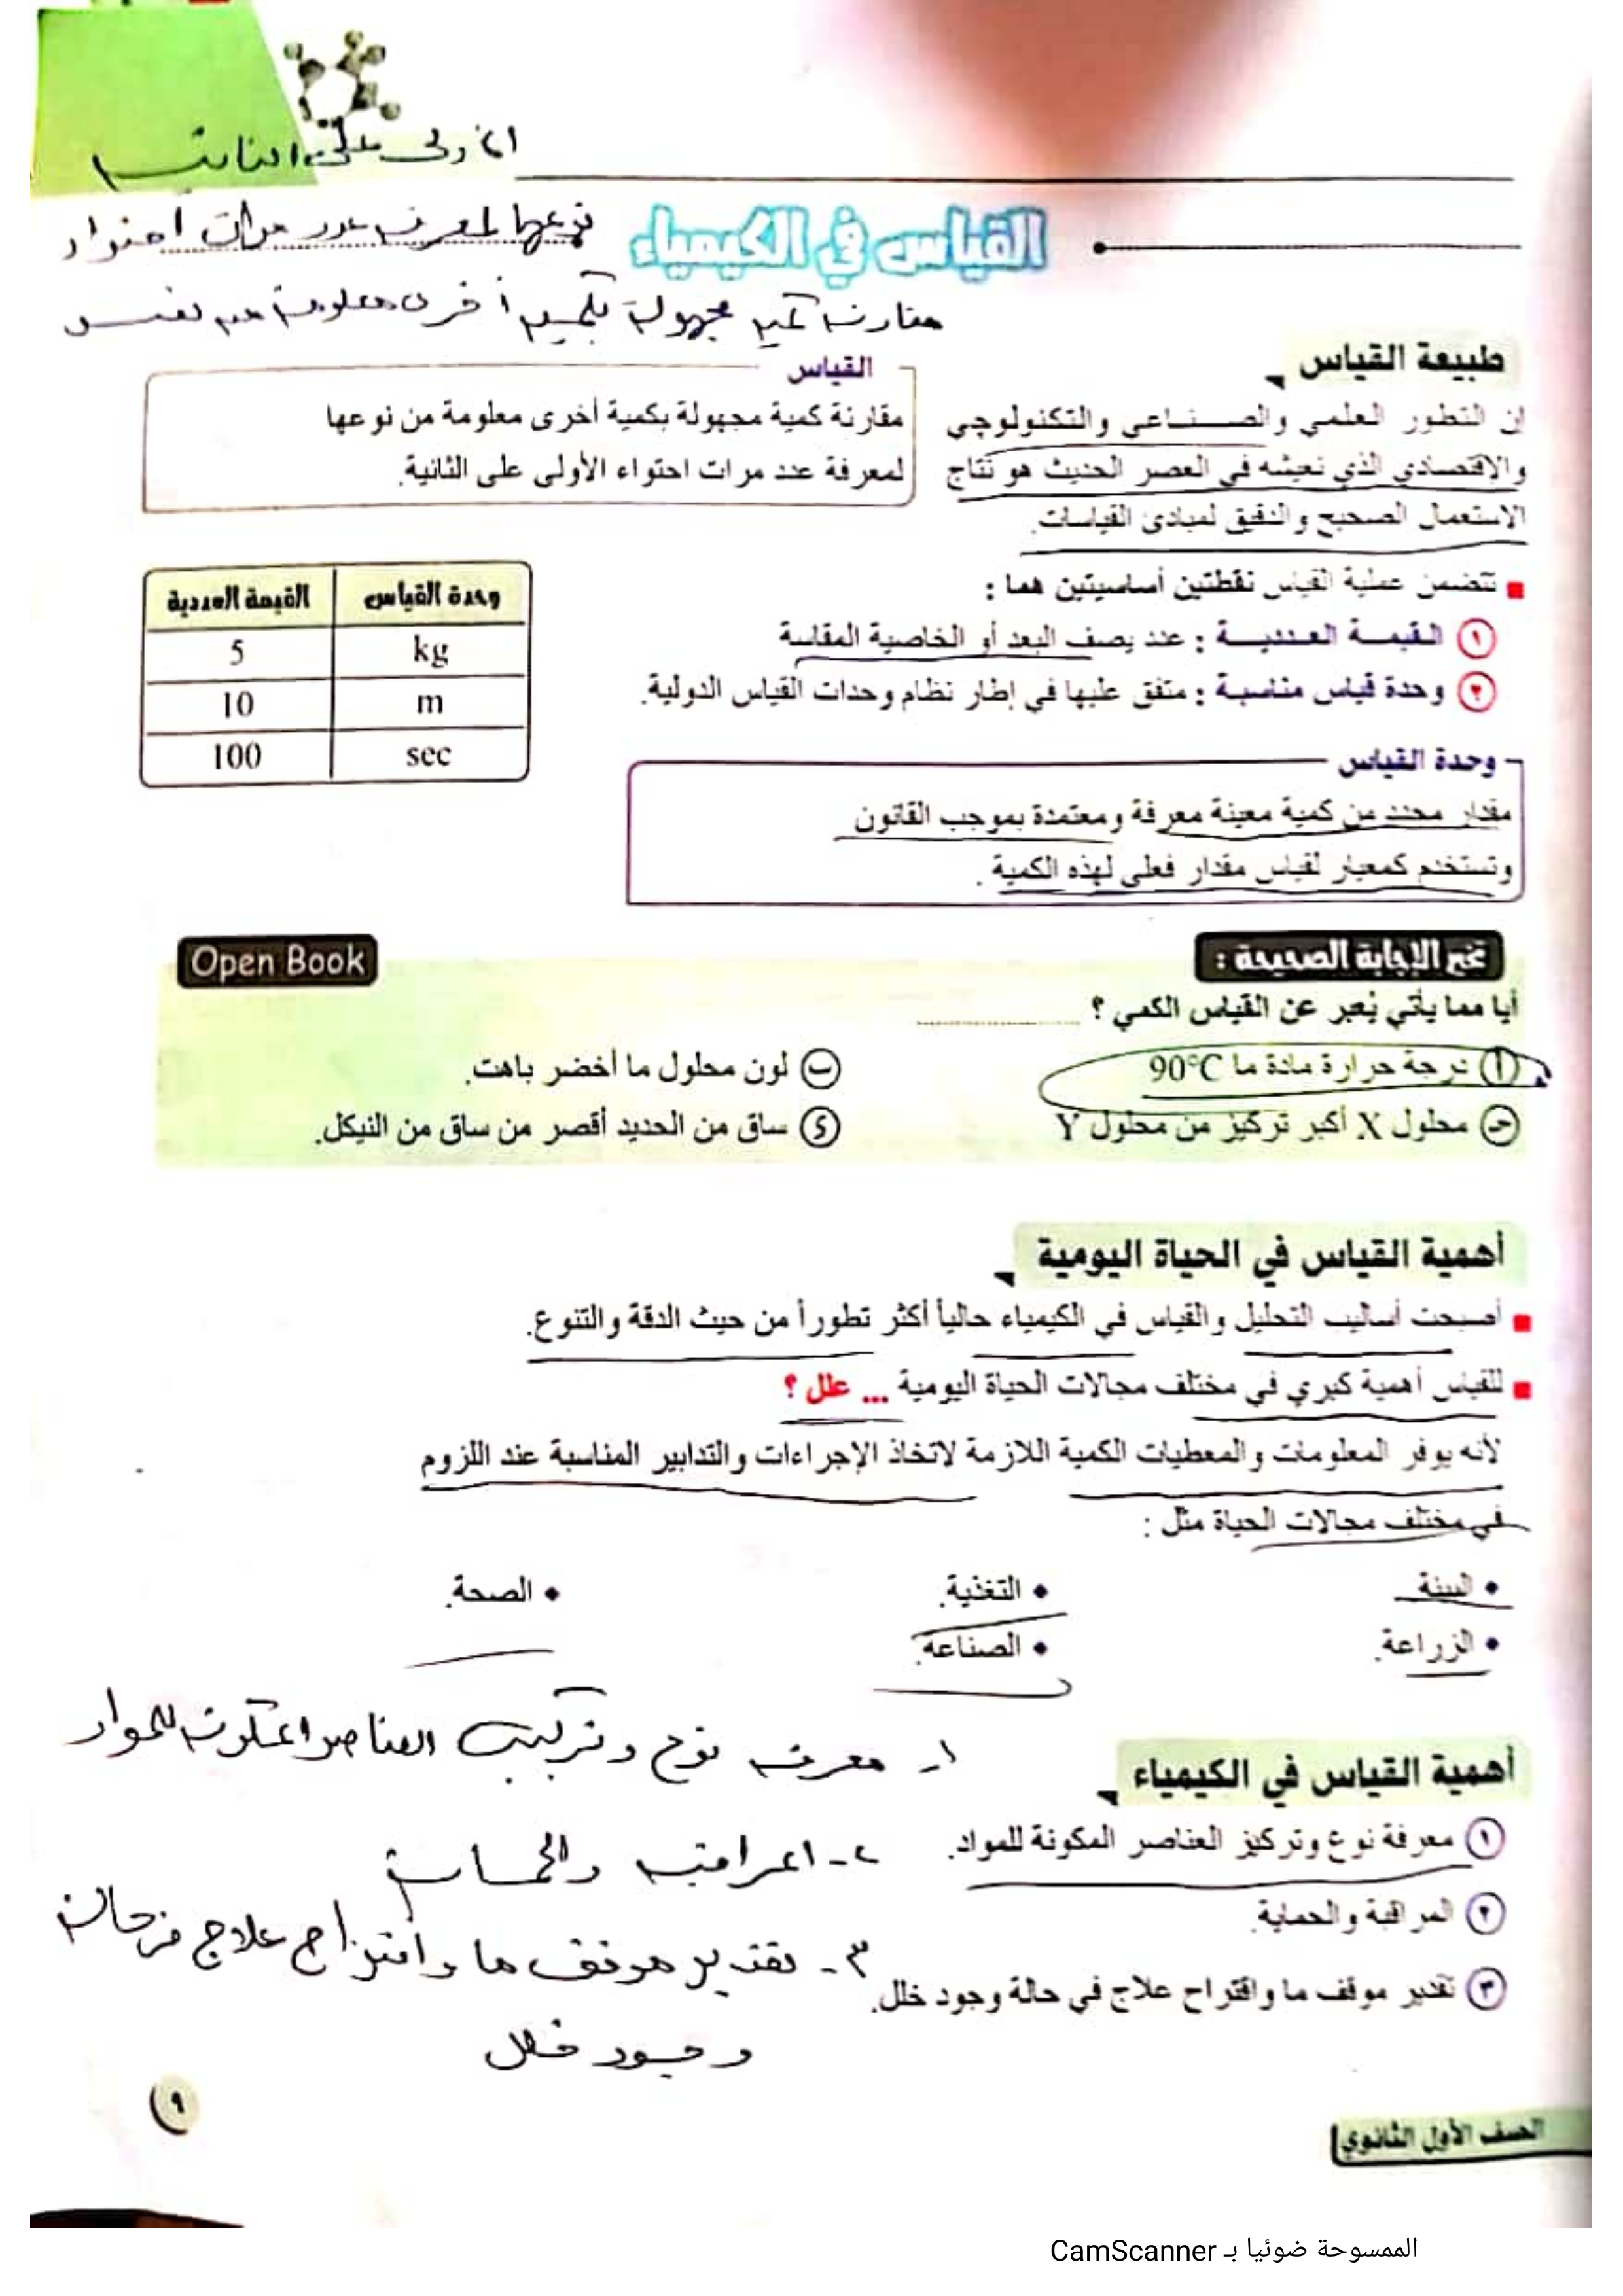 الأولى على الثانية
القياس في الكيمياء
نوعها لمعرفة عدد مرات احتواء
مقارنة كمية مجهولة بكمية أخرى معلومة من نفس
طبيعة القياس
إن التطور العلمي والصناعي والتكنولوجي
والاقتصادي الذي نعيشه في العصر الحديث هو نتاج
الاستعمال الصحيح والدقيق لمبادئ القياسات.
القياس
مقارنة كمية مجهولة بكمية أخرى معلومة من نوعها
لمعرفة عدد مرات احتواء الأولى على الثانية.
تتضمن عملية القياس نقطتين أساسيتين هما :
١ القيمة العددية : عدد يصف البعد أو الخاصية المقاسة
٢ وحدة قياس مناسبة : متفق عليها في إطار نظام وحدات القياس الدولية.
وحدة القياس القيمة العددية
kg 5
m 10
sec 100
وحدة القياس
مقدار محدد من كمية معينة معرفة ومعتمدة بموجب القانون
وتستخدم كمعيار لقياس مقدار فعلي لهذه الكمية .
تخير الإجابة الصحيحة :
Open Book
أيا مما يأتي يُعبر عن القياس الكمي ؟ ....................
أ درجة حرارة مادة ما 90°C
ب لون محلول ما أخضر باهت.
جـ محلول X أكبر تركيز من محلول Y
د ساق من الحديد أقصر من ساق من النيكل.
أهمية القياس في الحياة اليومية
أصبحت أساليب التحليل والقياس في الكيمياء حالياً أكثر تطوراً من حيث الدقة والتنوع.
للقياس أهمية كبري في مختلف مجالات الحياة اليومية ... علل ؟
لأنه يوفر المعلومات والمعطيات الكمية اللازمة لاتخاذ الإجراءات والتدابير المناسبة عند اللزوم
في مختلف مجالات الحياة مثل :
• البيئة • التغذية. • الصحة.
• الزراعة. • الصناعة.
أهمية القياس في الكيمياء
١ معرفة نوع وتركيز العناصر المكونة للمواد.
٢ المراقبة والحماية.
٣ تقدير موقف ما واقتراح علاج في حالة وجود خلل.
١- معرفة نوع وتركيب العناصر المكونة للمواد
٢- المراقبة والحماية
٣- تقدير موقف ما واقتراح علاج في حالة
وجود خلل
٩
الصف الأول الثانوي
الممسوحة ضوئيا بـ CamScanner